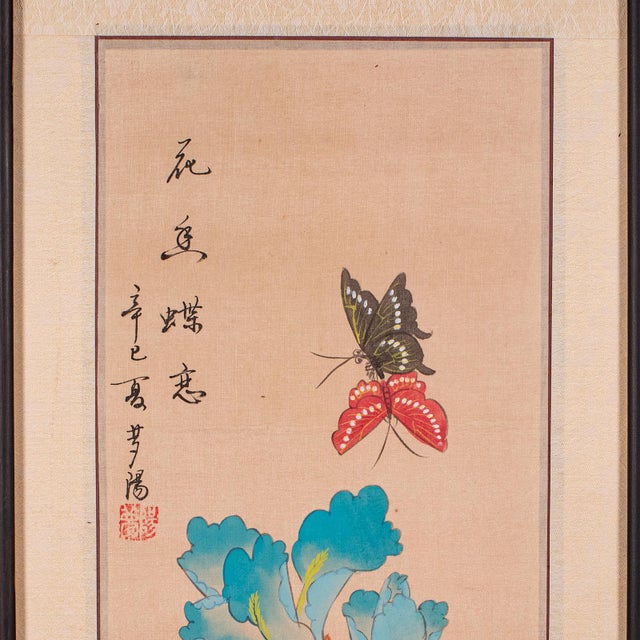 花香蝶恋
辛巳夏梦阳